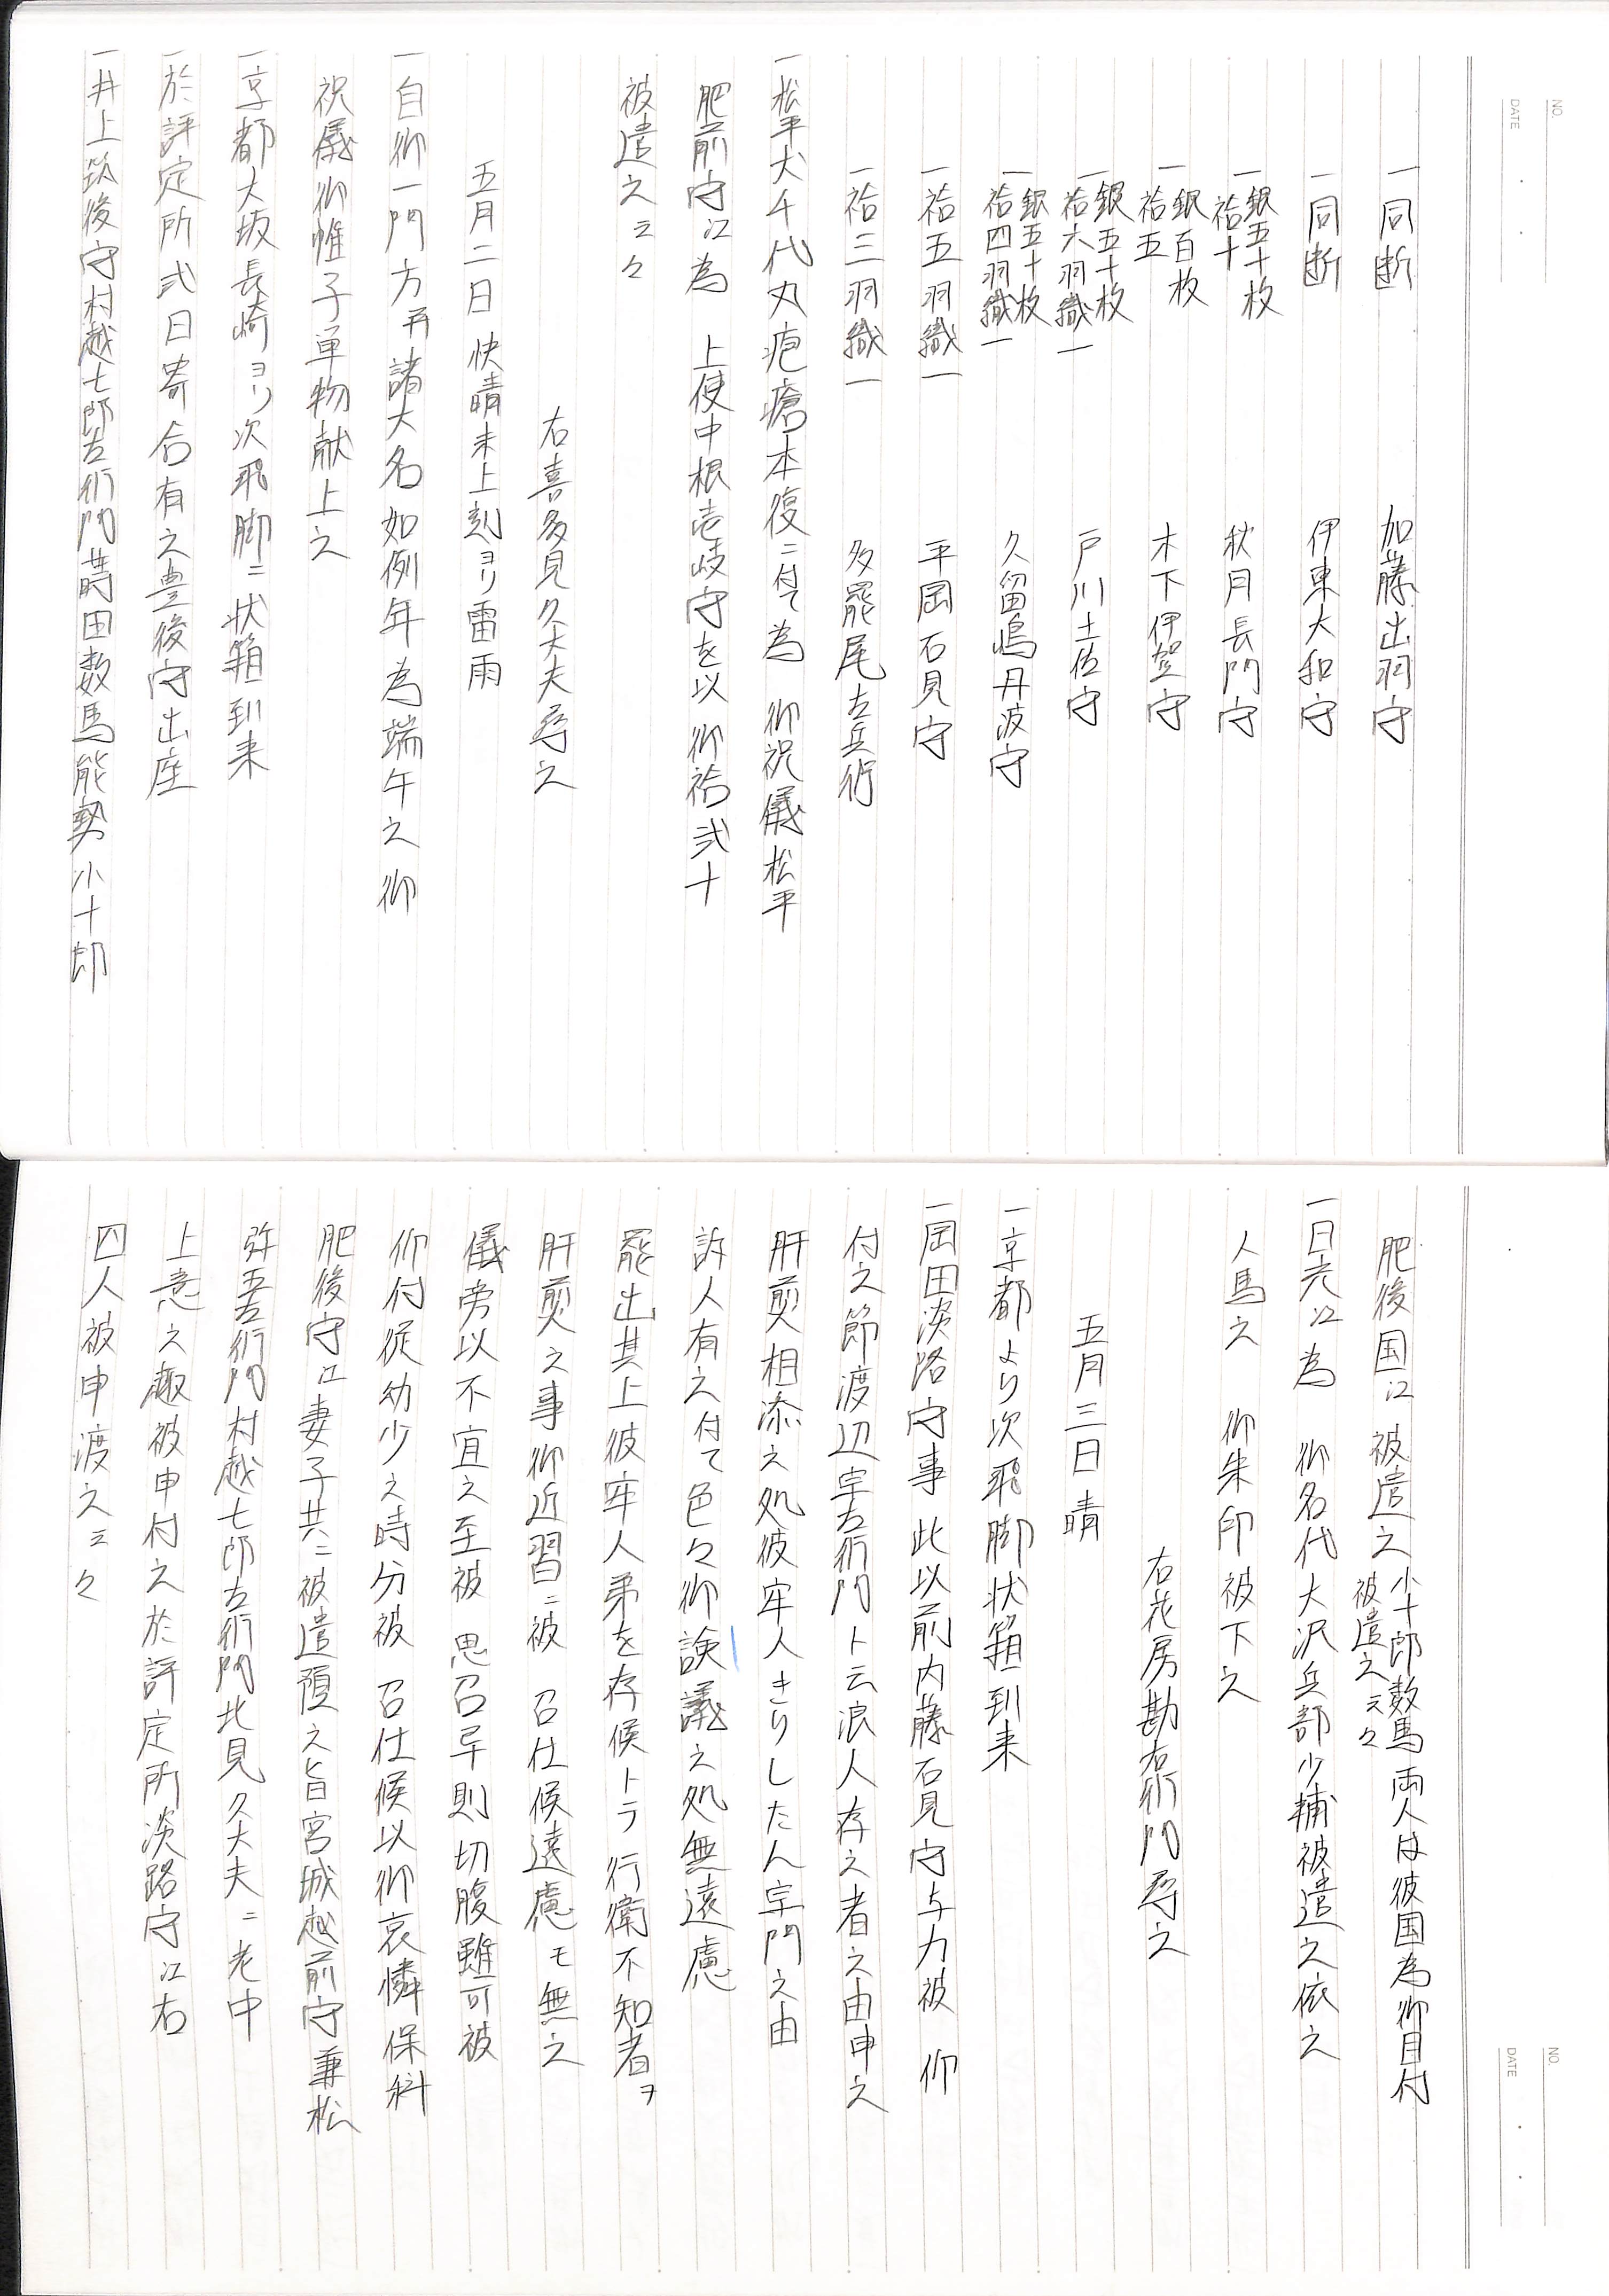 NO.
DATE
一同断 加藤出羽守
一同断 伊東大和守
一銀五十枚 袷十 秋月長門守
一銀百枚 袷五 木下伊賀守
一銀五十枚 袷六羽織一 戸川土佐守
一銀五十枚 袷四羽織一 久留嶋丹波守
一袷五羽織一 平岡石見守
一袷三羽織一 多羅尾左兵衛
一松平犬千代丸疱瘡本復ニ付て為 御祝儀松平
肥前守江為 上使中根壱岐守を以御袷弐十
被遣之云々
右喜多見久大夫尋之
五月二日快晴未上刻ヨリ雷雨
一自御一門方并諸大名如例年為端午之御
祝儀御帷子単物献上之
一京都大坂長崎ヨリ次飛脚ニ状箱到来
一於評定所弐日寄合有之豊後守出座
一井上筑後守村越七郎左衛門蒔田数馬能勢小十郎
NO.
DATE
肥後国江被遣之小十郎数馬両人は彼国為御目付
被遣之云々
一日光江為 御名代大沢兵部少輔被遣之依之
人馬之 御朱印被下之
右花房勘右衛門尋之
五月三日晴
一京都より次飛脚状箱到来
一岡田淡路守事此以前内藤石見守与力被 仰
付之節渡辺宗左衛門ト云浪人存之者之由申之
肝煎相添之処彼牢人きりしたん宗門之由
訴人有之付て色々御詮議之処無遠慮
罷出其上彼牢人弟を存候トテ行衛不知者ヲ
肝煎之事御近習ニ被 召仕候遠慮モ無之
儀旁以不宜之至被 思召早則切腹雖可被
仰付従幼少之時分被 召仕候以御哀憐保科
肥後守江妻子共ニ被遣預之旨宮城越前守兼松
弥五左衛門村越七郎左衛門北見久大夫ニ老中
上意之趣被申付之於評定所淡路守江右
四人被申渡之云々